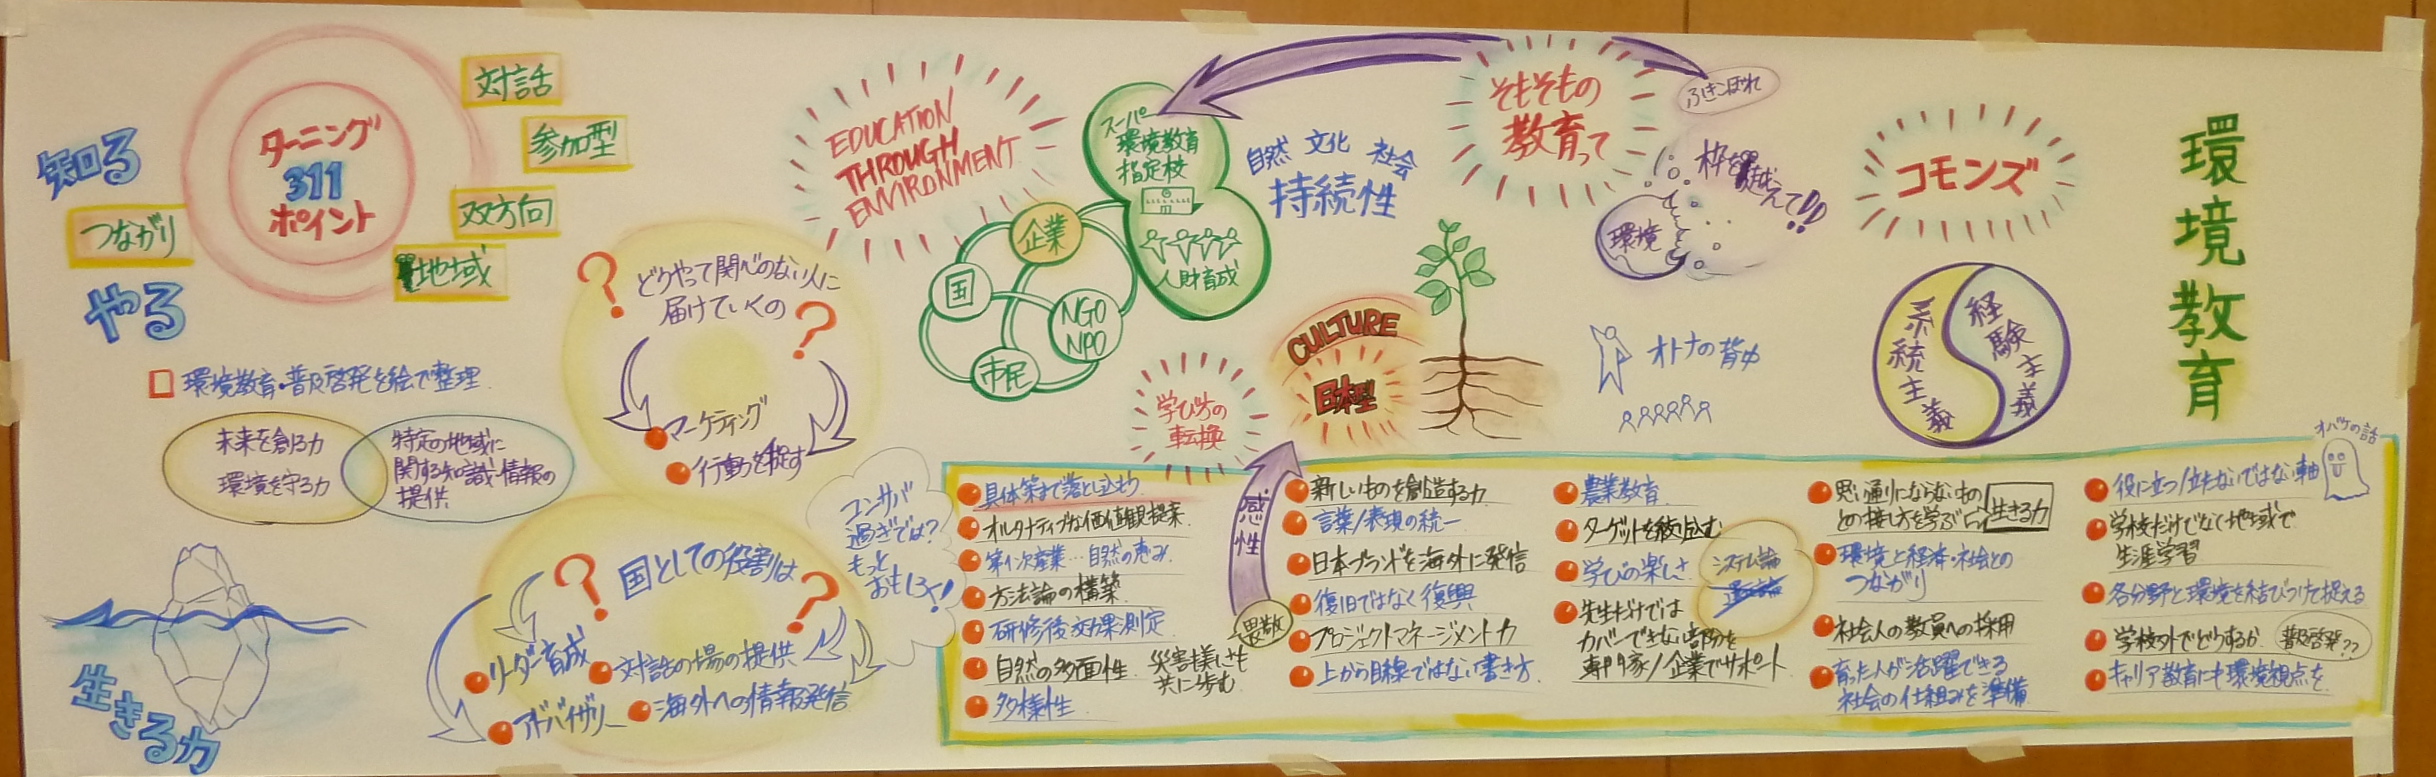 環境教育
コモンズ
系統主義
経験主義
そもそもの
教育って
ふきこぼれ
枠を越えて!!
環境
オトナの背中
自然 文化 社会
持続性
スーパー
環境教育
指定校
人財育成
企業
国
NGO
NPO
市民
EDUCATION
THROUGH
ENVIRONMENT
CULTURE
日本型
学び方の
転換
感性
畏敬
ターニング
311
ポイント
対話
参加型
双方向
地域
つながり
知る
やる
生きる力
環境教育・普及啓発を絵で整理
未来を創る力
環境を守る力
特定の地域に
関する知識・情報の
提供
どうやって関心のない人に
届けていくの
マーケティング
行動を促す
国としての役割は
リーダー育成
対話の場の提供
アドバイザリー
海外への情報発信
コンサバ
過ぎでは?
もっと
おもしろく!
具体策まで落とし込もう
オルタナティブな価値観提案
第1次産業…自然の恵み
方法論の構築
研修後効果測定
自然の多面性
災害様しさも
共に歩む
多様性
新しいものを創造する力
言葉/表現の統一
日本ブランドを海外に発信
復旧ではなく復興
プロジェクトマネージメント力
上から目線ではない書き方
農業教育
ターゲットを絞り込む
学びの楽しさ
先生だけでは
カバーできない部分を
専門家/企業でサポート
システム論
思い通りにならないもの
との接し方を学ぶ
生きる力
環境と経済・社会との
つながり
社会人の教員への採用
育った人が活躍できる
社会の仕組みを準備
オバケの話
役に立つ/立たないではない軸
学校だけでなく地域で
生涯学習
各分野と環境を結びつけて捉える
学校外でどうするか
普及啓発??
キャリア教育にも環境視点を